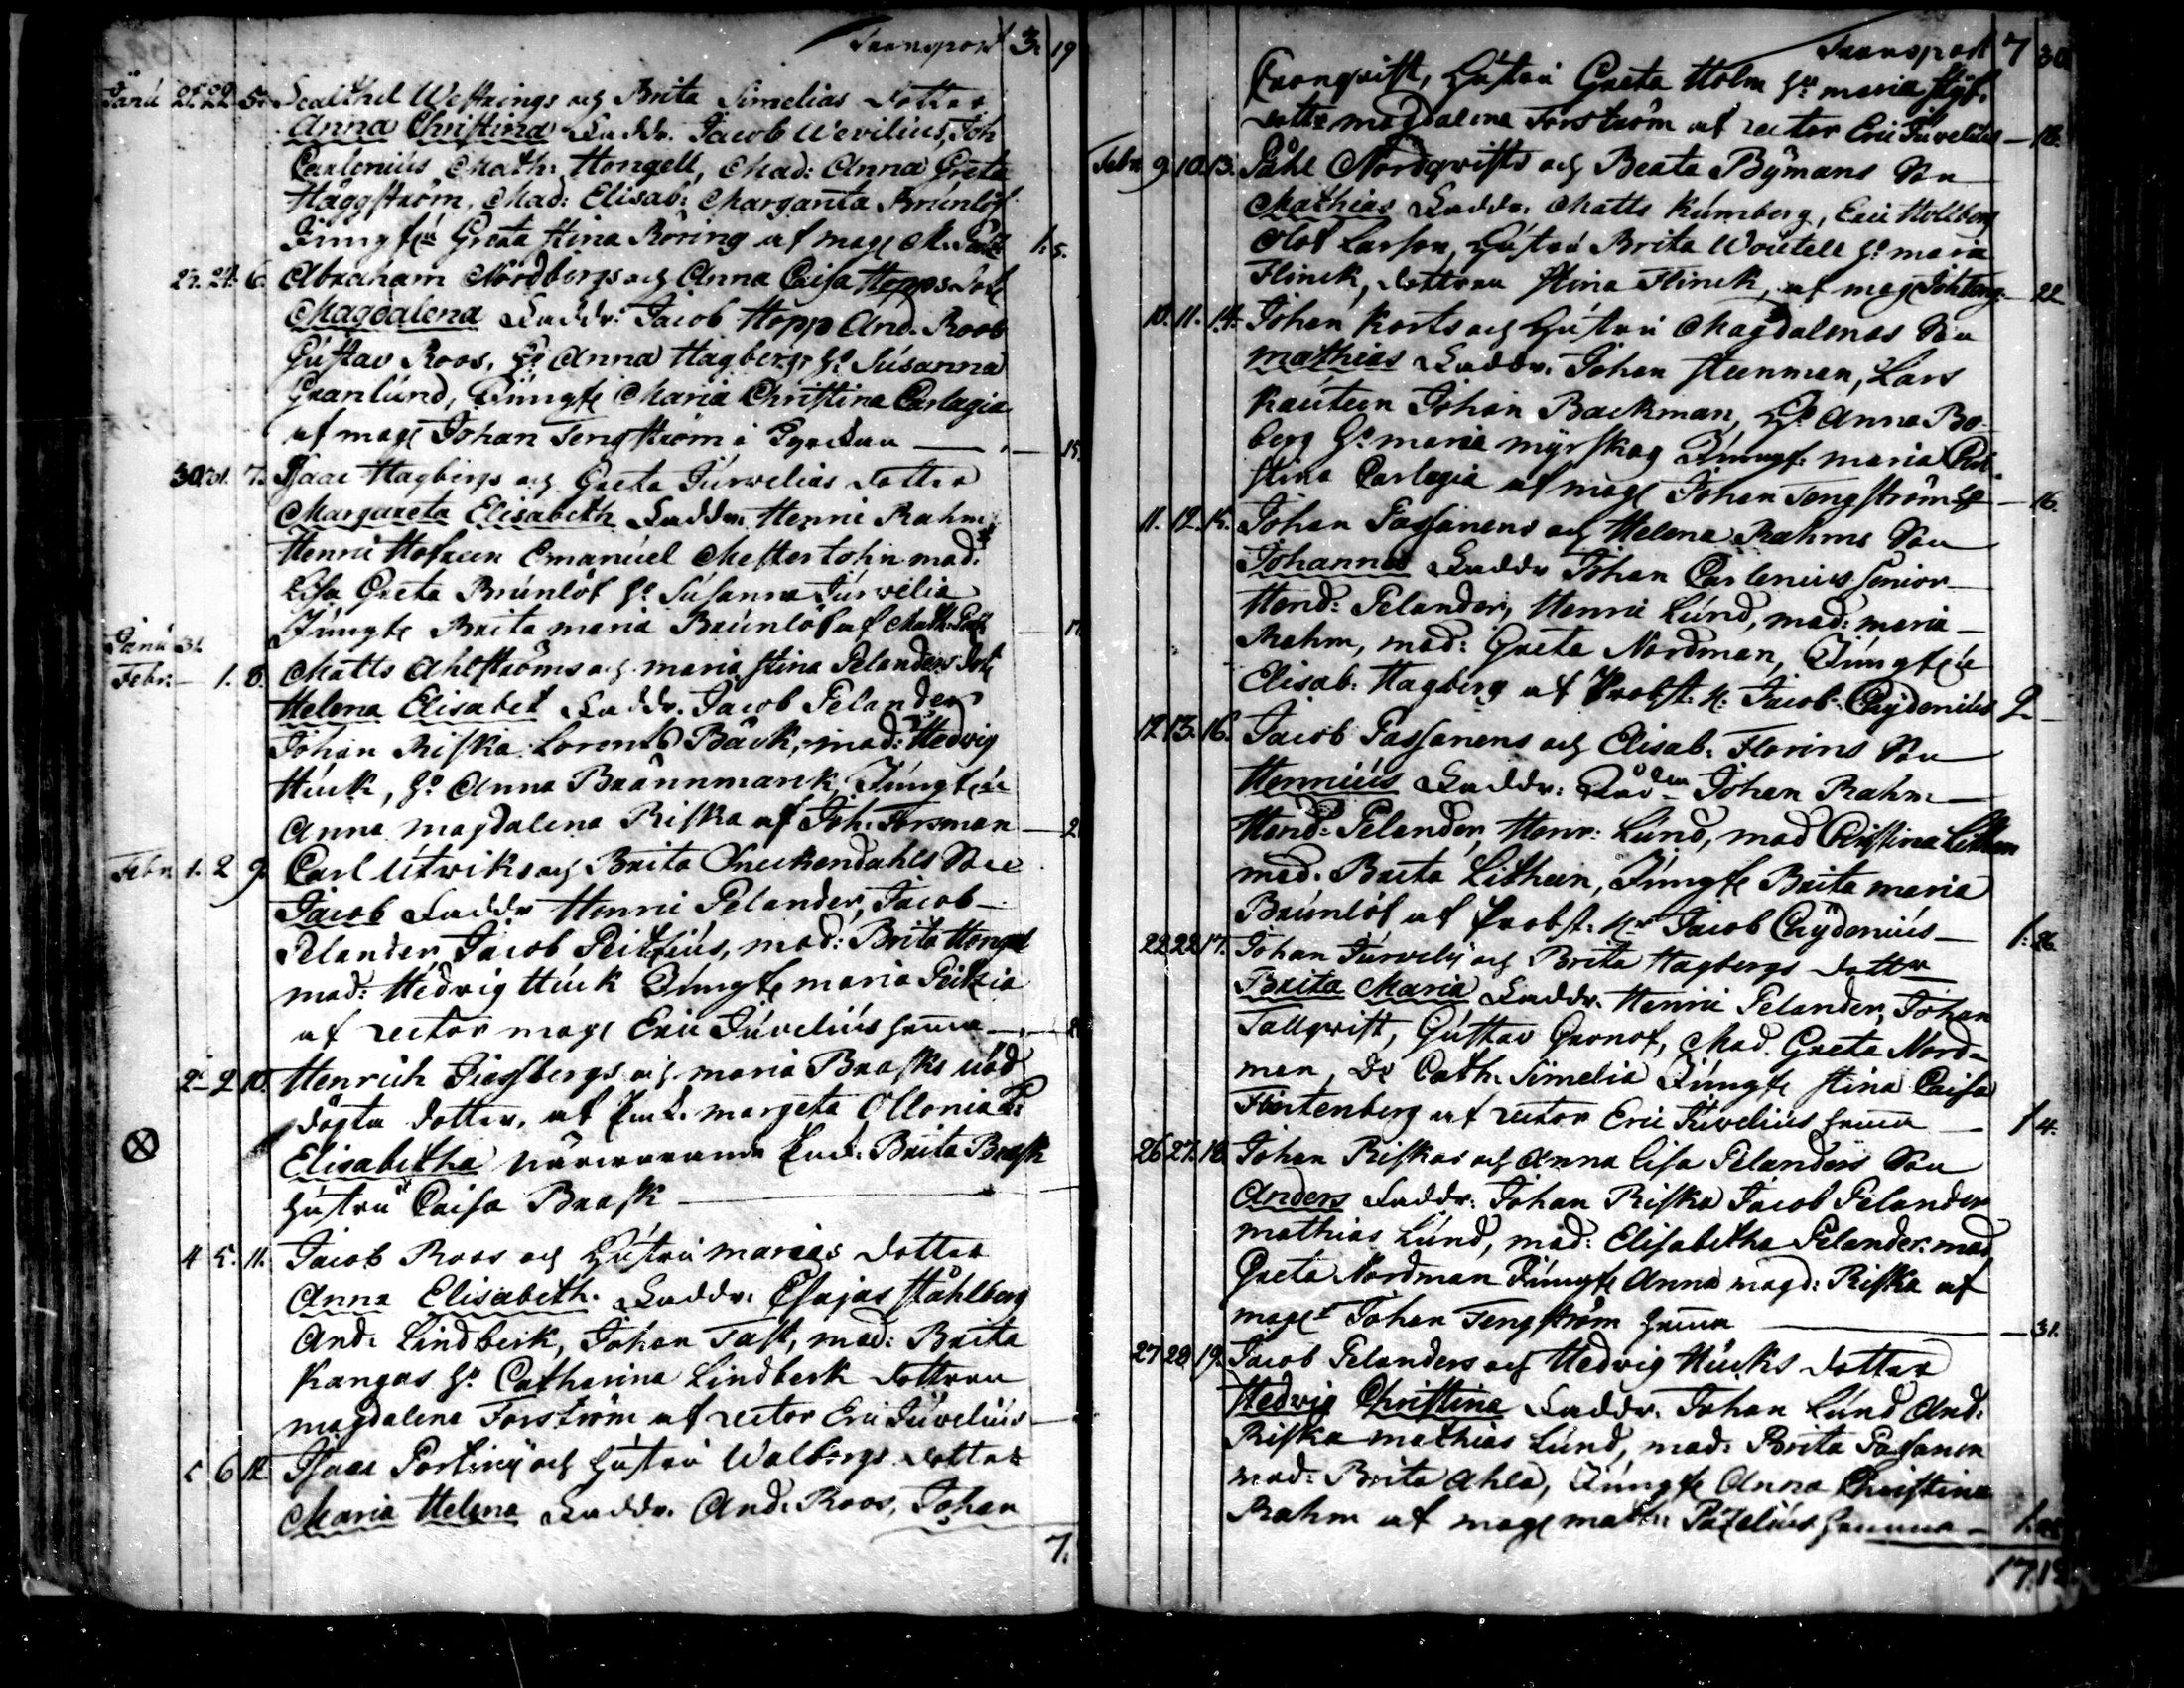 Transport 3. 19
Janu 21. 22. 5. Westrings och Brita Simelias dotter
Anna Christina Faddr. Jacob Wevilius, Joh
Carlenius Math: Hongell, Mad: Anna Greta
Häggström, Mad: Elisab: Margareta Brunlöf
Jungfru Greta Stina Röring af mag M. 1. 5.
27. 6. Abraham Nordbergs och Anna Caisa Hopps dott
Magdalena Faddr: Jacob Hopp And. Roos
Gustav Roos, Ho Anna Hagberg, Ho Susanna
Granlund, Jungfr Maria Christina Carlagia
af mag Johan Tengström i — 15.
30. 31. 7. Isaac Hagbergs och Greta Jurvelias dotter
Margareta Elisabeth Faddr. Henric Rahm
Henric Hofreen Emanuel Mestertohn mad:
Lisa Greta Brunlöf Ho Susanna Jurvelia
Jungfr Brita Maria Brunlöf af Math:
Janu 31
Febr. — 1. 8. Matts Ahlströms och Maria Stina Pelanders dott
Helena Elisabet Faddr. Jacob Pelander
Johan Riska Lorents Bäck, mad: Hedvig
Huck, Ho Anna Brännmarck, Jungfru
Anna Magdalena Riska af Joh: Forsman — 2
Febr 1. 2 9. Carl Utwiks och Brita Sneckendahls Son
Jacob Faddr Henric Pelander, Jacob
Pelander, Jacob Peitzius, mad: Brita Hongell
mad: Hedvig Huck Jungfr Maria Peitzia
af rector mag Eric Juvelius
2 — 2 10. Henrich Forssbergs och Maria Brasks nöd
döpta dotter, af Margeta Ollonia
Elisabetha närwarande Brita Brask
Hustru Caisa Brask
4 5. 11. Jacob Roos och Hustru Marias dotter
Anna Elisabeth. Faddr. Esajas Ståhlberg
And: Lindbeck, Johan Tast, mad: Brita
Kangas Ho Catharina Lindbeck dottren
Magdalena Forström af rector Eric Juvelius
5 6 12. Isaac och Hustru Walborgs dotter
Maria Helena Faddr. And: Roos, Johan
7.
Transport 7 30
Cronqvist, Hustru Greta Holm Ho Maria
dottr Magdalena Forström af rector Eric Juvelius — 18.
Febr 9. 10. 13. Påhl Nordqvists och Beata Bymans Son
Mathias Faddr. Matts Kumberg, Eric Hollberg
Olof Larson, Hustru Brita Woutell Ho Maria
Flinck, dottren Stina Flinck, af mag — 22
10. 11. 14. Johan Korts och Hustru Magdalenas Son
Mathias Faddr. Johan Steenman, Lars
Kauteen Johan Backman, Ho Anna Bo-
berg Ho Maria Myrskog Jungf: Maria Chri-
stina Carlagia af mag Johan Tengström — 16.
11. 12. 15. Johan Passanens och Helena Rahms Son
Johannes Faddr Johan Carlenius Senior
Hend: Pelander, Henric Lund, mad: Maria
Rahm, mad: Greta Nordman, Jungfru
Elisab: Hagberg af Probst: H: Jacob Chydenius 2 —
12 13. 16. Jacob Passanens och Elisab: Florins Son
Henricus Faddr: Rådm Johan Rahm
Hend: Pelander, Henr: Lund, mad Christina Litheen
mad: Brita Litheen, Jungfr Brita Maria
Brunlöf af Probst: Hr Jacob Chydenius — 1: 26
22 22 17. Johan Jurvelij och Brita Hagbergs dotter
Brita Maria Faddr. Henric Pelander, Johan
Tallqvist, Gustav Granof, Mad. Greta Nord-
man, Do Cath: Simelia Jungfr Stina Caisa
af rector Eric Juvelius — 1 4.
26 27. 18. Johan Riskas och Anna Lisa Pelanders Son
Anders Faddr: Johan Riska Jacob Pelander
Mathias Lund, mad: Elisabetha Pelander mad
Greta Nordman Jungfr Anna Magd: Riska af
mag Johan Tengström — 31.
27 28 19. Jacob Pelanders och Hedvig Hucks dotter
Hedvig Christina Faddr. Johan Lund And:
Riska Mathias Lund, mad: Brita Passanen
mad: Brita Ahla, Jungfr Anna Christina
Rahm af mag Math: Pazelius — 1.
17. 18